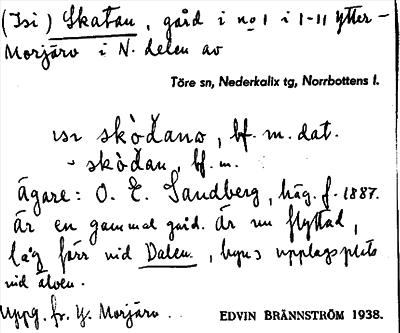 (Isi) Skatan, gård i no 1 i 1-11 Ytter-
Morjärv i N. delen av
Töre sn, Nederkalix tg, Norrbottens l.
ɪsɪ skòđanọ, bf. m. dat.
~ skòđan, bf. m.
Ägare: O. E. Sandberg, häg. f. 1887.
Är en gammal gård. Är nu flyttad,
låg förr vid Dalen, byns upplagsplats
vid älven.
Uppg. fr. Y. Morjärv.
EDVIN BRÄNNSTRÖM 1938.